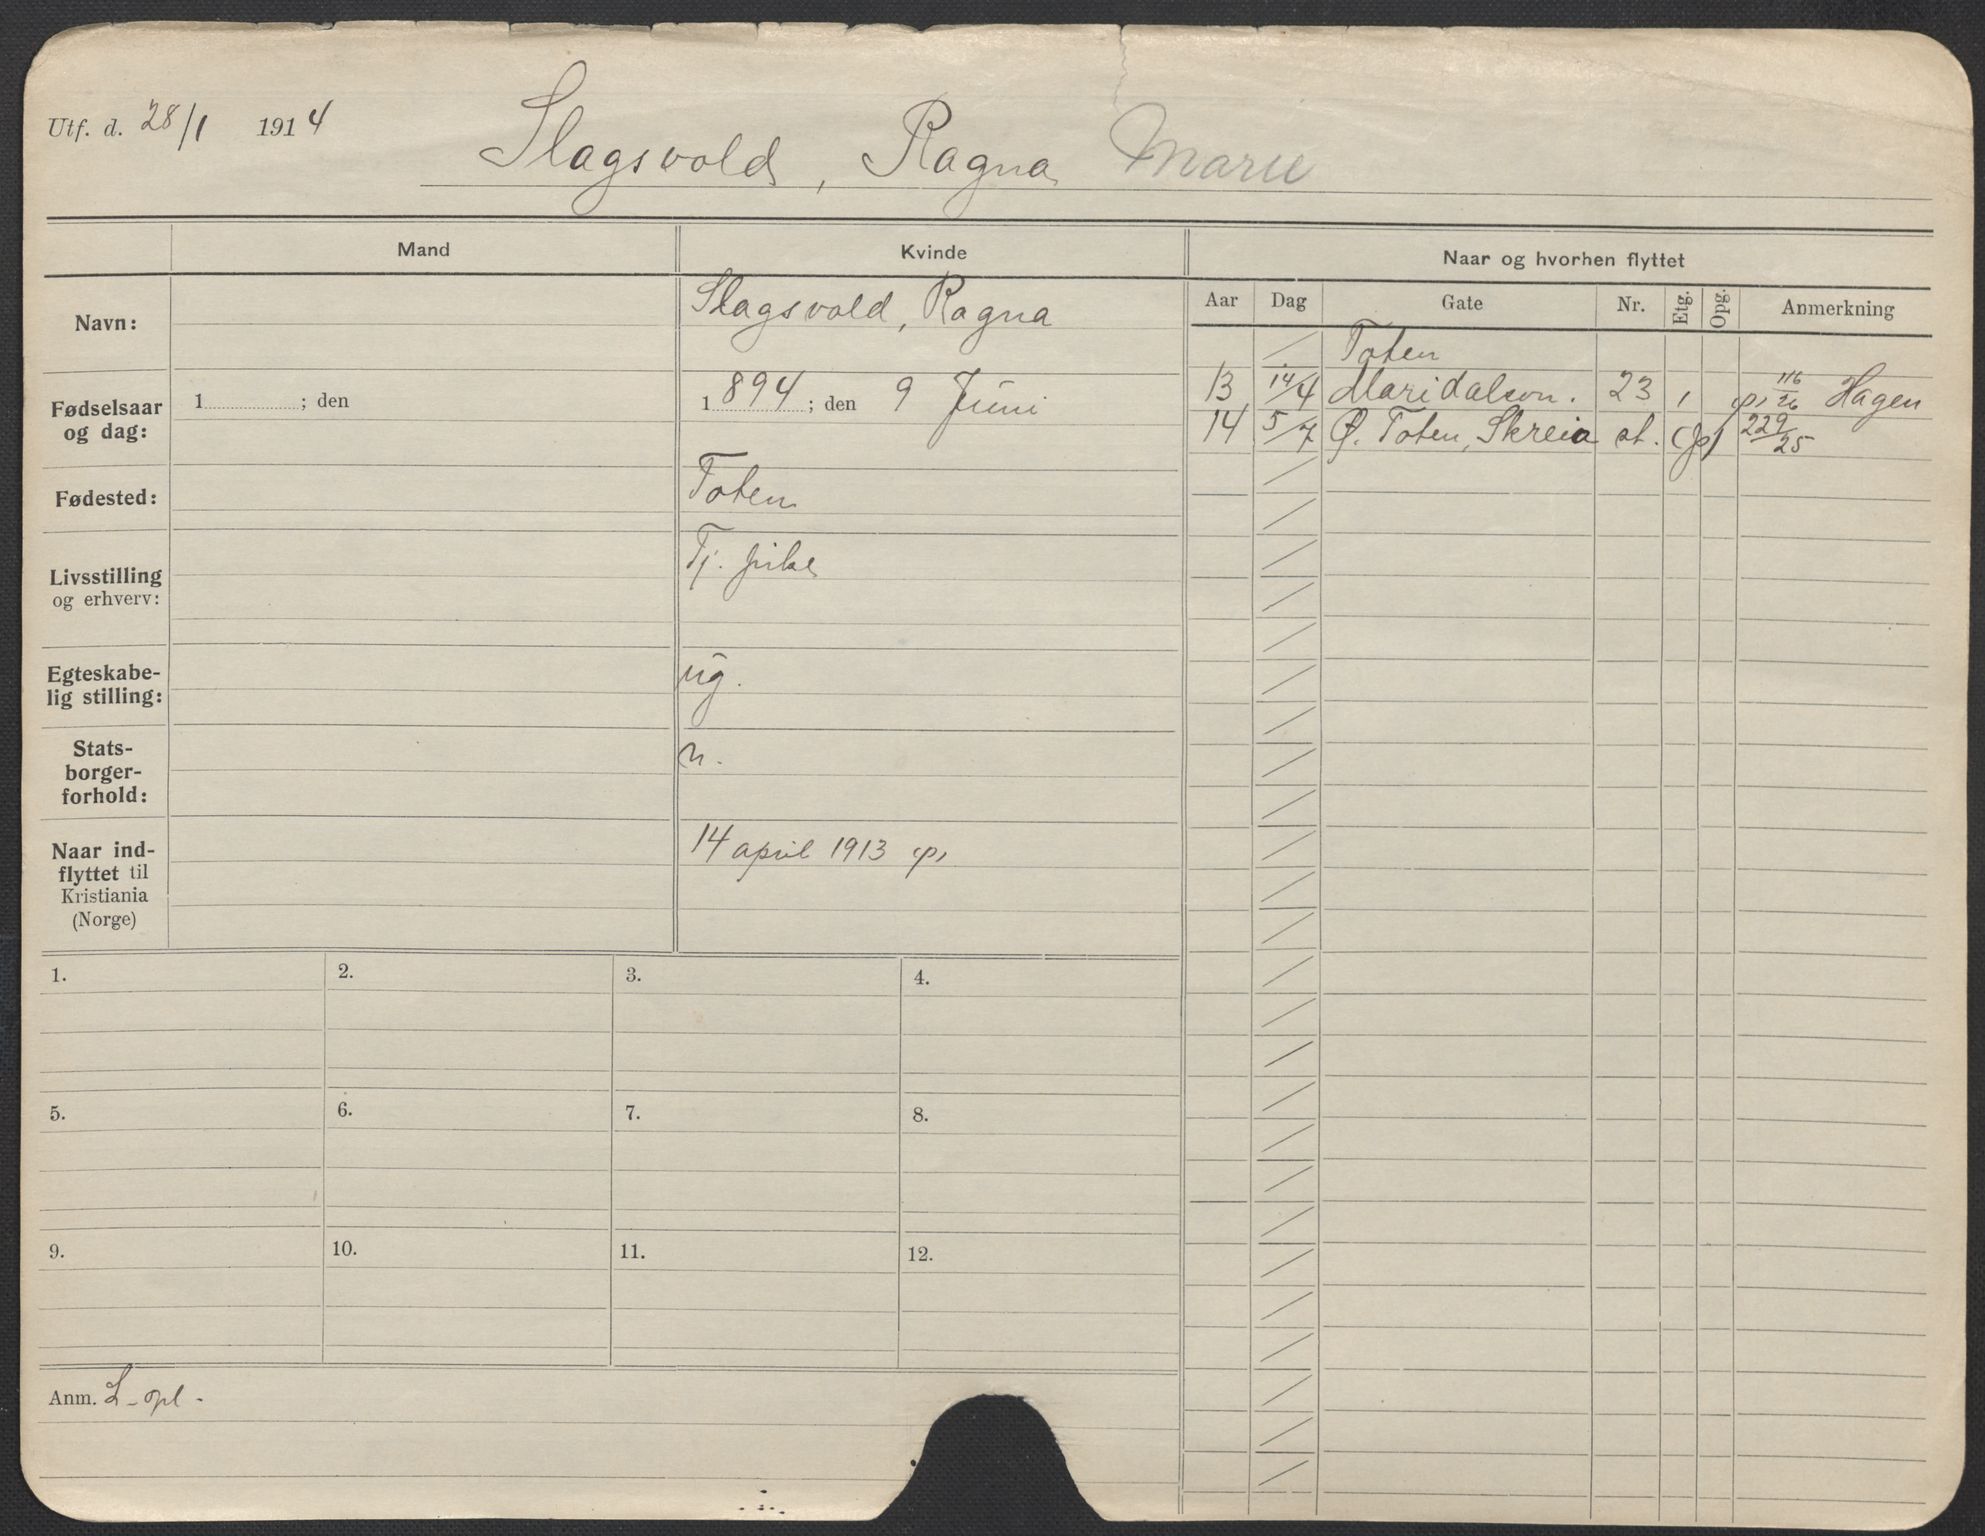 Utf. d. 28/1 1914
Slagsvold, Ragna Marie
Mand
Kvinde
Navn:
Slagsvold, Ragna
Fødselsaar
og dag:
1 ; den
1894 ; den 9 Juni
Fødested:
Toten
Livsstilling
og erhverv:
Tj. pike
Egteskabe-
lig stilling:
ug.
Stats-
borger-
forhold:
n.
Naar ind-
flyttet til
Kristiania
(Norge)
14 april 1913
1. 2. 3. 4.
5. 6. 7. 8.
9. 10. 11. 12.
Anm. L-opl-
Naar og hvorhen flyttet
Aar Dag Gate Nr. Etg. Opg. Anmerkning
Toten
13 14/4 Maridalsvn. 23 1 116/26 Hagen
14 5/7 Ø. Toten, Skreia st. 229/25